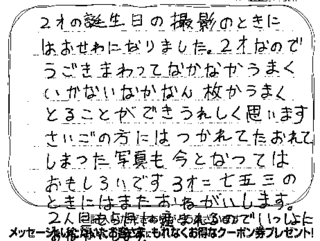 2才の誕生日の撮影のときに
はおせわになりました。2才なので
うごきまわってなかなかうまく
いかないなかなん枚かうまく
とることができうれしく思います
さいごの方にはつかれてたおれて
しまった写真も今となっては
おもしろいです3才=七五三の
ときにはまたおねがいします。
2人目も
メッセージ もれなくお得なクーポン券プレゼント!